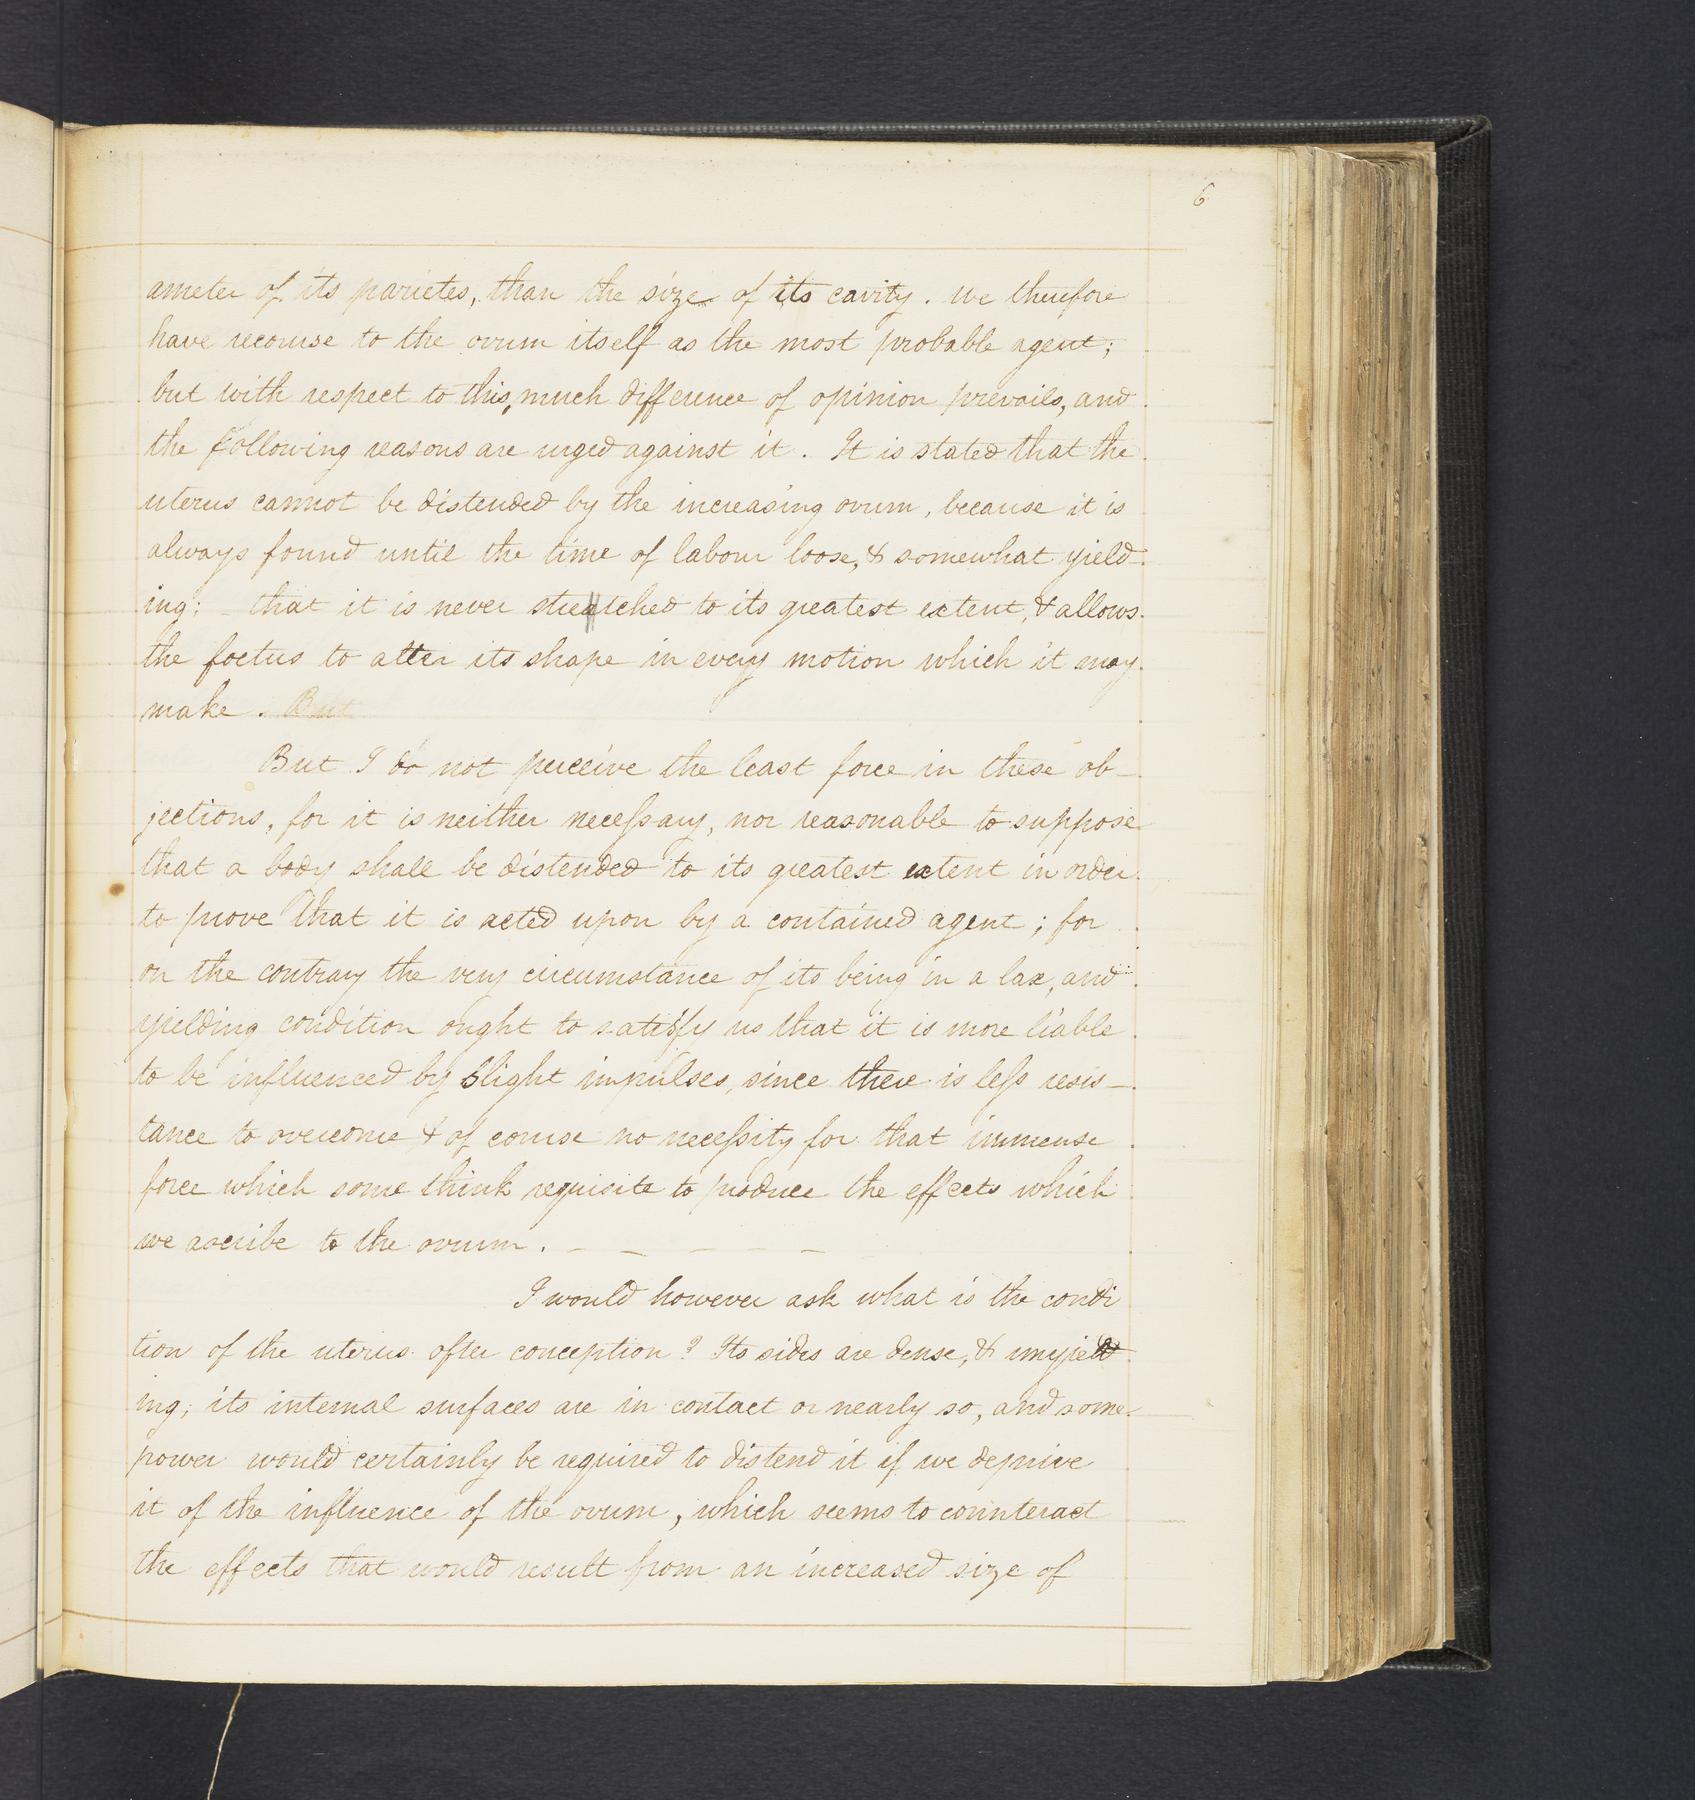 6
ameter of its parietes, than the size of its cavity. We therefore
have recourse to the ovum itself as the most probable agent;
but with respect to this, much difference of opinion prevails, and
the following reasons are urged against it. It is stated that the
uterus cannot be distended by the increasing ovum, because it is
always found until the time of labour loose, & somewhat yield-
ing: – that it is never streatched to its greatest extent, & allows
the foetus to alter its shape in every motion which it may
make. But
But I do not perceive the least force in these ob-
jections, for it is neither necessary, nor reasonable to suppose
that a body shall be distended to its greatest extent in order
to prove that it is acted upon by a contained agent; for
on the contrary the very circumstance of its being in a lax, and
yielding condition ought to satisfy us that it is more liable
to be influenced by slight impulses, since there is less resis-
tance to overcome & of course no necessity for that immense
force which some think requisite to produce the effects which
we ascribe to the ovum. – – – – –
I would however ask what is the condi
tion of the uterus after conception? Its sides are dense, & unyield
ing; its internal surfaces are in contact or nearly so, and some
power would certainly be required to distend it if we deprive
it of the influence of the ovum, which seems to counteract
the effects that would result from an increased size of